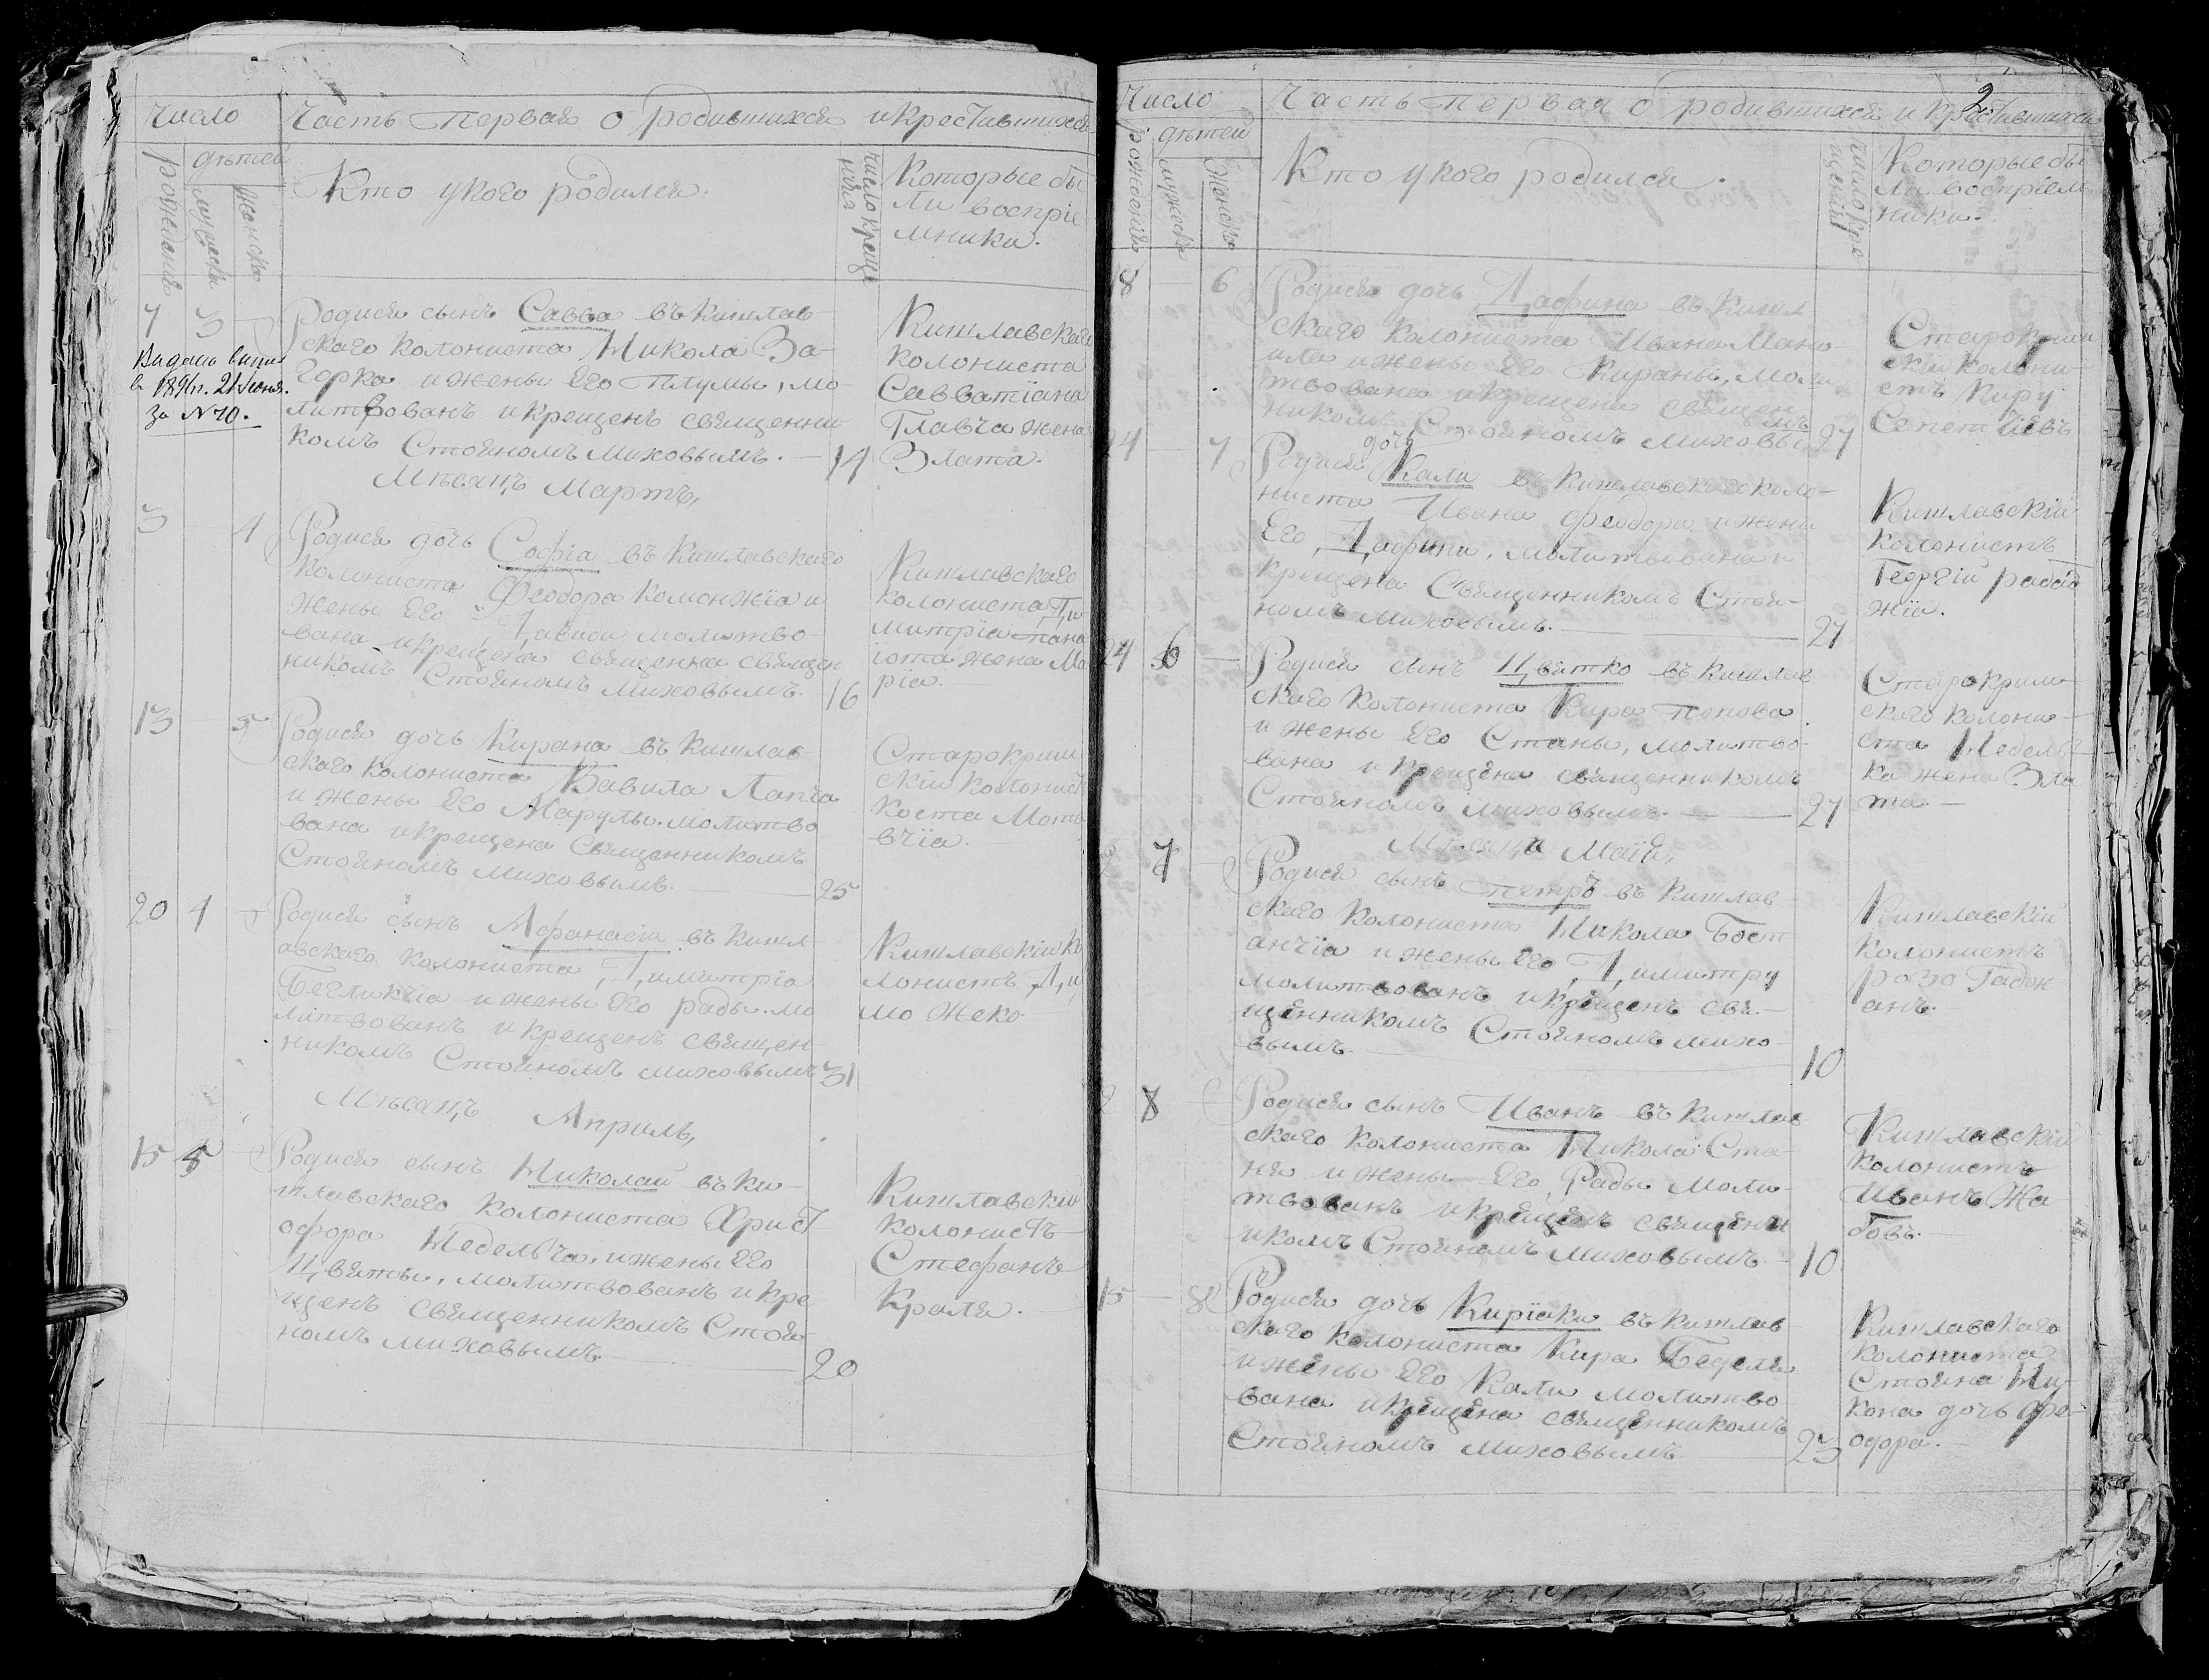 Число Часть Первая о родившихся икрестившихся
рожденія
дѣтей
мужеска
женска
Кто укого родился.
число креще
нія
Которые бы
ли воспріе
мники.
7 3 — Родися сынъ Савва въ Кишлав
скаго колониста Никола За-
горка ижены Его Плумы, мо-
литвованъ икрещенъ священни
комъ Стояномъ Миховымъ. — 14
Кишлавскаго
колониста
Савватіана
Главча жена
Злата.
Выданъ
в 189 г. 21 Іюня.
за № 10.
Мѣсяцъ Мартъ,
3 — 4 Родися дочь Софіа въ Кишлавскаго
колониста Феодора Комонжіа и
жены Его Д,авиди молитво-
вана икрещена священна священ
никомъ Стояномъ Миховымъ. 16
Кишлавскаго
колониста Д,и
митріа пана
іота жена Ма
ріа.
13 — 5 Родися дочь Кирана въ Кишлав
скаго колониста Вавила Лапча
и жены Его Марулы. молитво
вана икрещена Священникомъ
Стояномъ Миховымъ. — 25
Старокрим
скій колонист
Коста Мот
вчіа.
20 4 — Родися сынъ Афанасіа въ Кишл-
авскаго колониста Д,имитріа
Бегликчіа ижены Его рады. мо
литвованъ икрещенъ священ
никомъ Стояномъ Миховымъ 31
Кишлавскій ко
лонистъ Д,и
мо Жеко
Мѣсяцъ Априль,
15 5 — Родися сынъ Николай въ Ки-
шлавскаго колониста Христ
офора Недельча, ижены Его
Ц,вяты, молитвованъ и кре
щенъ священникомъ Стоя-
номъ Миховымъ. — 20
Кишлавскій
колонистъ
Стефанъ
Краля.
2
Число Часть первая о родившихся и крестившихся
рожденія
дѣтей
мужеска
женска
Кто укого родился.
число кре
щенія
Которые бы
ли воспріем
ники.
8 — 6 Родися дочь Д,афина въ Кишл
скаго колониста Ивана Мано-
ила ижены Его Кираны, моли
твована икрещена священ
никомъ Стояномъ Миховымъ 27
Старокрим
скій колони-
стъ Киру
Сепетчіевъ
24 — 7 Родися дочь Кали в Кишлавскаго коло-
ниста Ивана Феодора, и жены
Его, Д,афини, молитвована и
крещена Священникомъ Стоя-
номъ Миховымъ. — 27
Кишлавскій
колонистъ
Георгій рабад
жіа.
24 6 — Родися сынъ Ц,вятко въ Кишлав
скаго колониста Кира Попова
и жены Его Станы, молитво-
вана и крещена священникомъ
Стояномъ Миховымъ. — 27
Старокрим-
скаго колони-
ста Недель-
ка жена Зла
та. —
Мѣсяца Маія,
7 — Родися сынъ Петръ въ Кишлав
скаго колониста Никола Бост
анчіа и жены Его, Д,имитру
молитвованъ икрещенъ свя-
щенникомъ Стояномъ михо-
вымъ. — 10
Кишлавскій
колонистъ
розо Гадж
анъ.
2 8 Родися сынъ Иванъ въ Кишлав
скаго колониста Никола Ста-
ня и жены Его, Рады моли-
твованъ икрещенъ священн
икомъ Стояномъ Миховымъ — 10
Кишлавскій
колонистъ
Иванъ Жа-
бовъ. —
15 — 8 Родися дочь Киріаки въ Кишлав
скаго колониста Кира Беделя
ижены Его Кали молитво-
вана икрещена священникомъ
Стояномъ Миховымъ — 23
Кишлавскаго
колониста
Стояна Ни-
кона дочь Фе-
одора. —